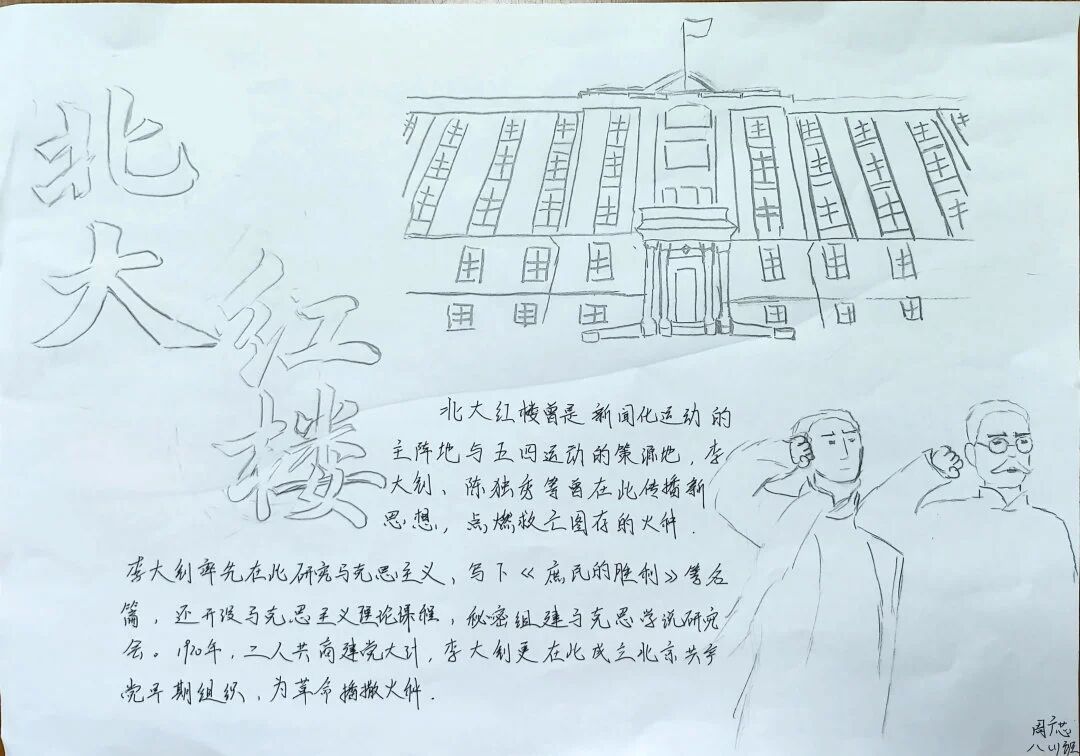 北大
红楼
北大红楼曾是新闻化运动的
主阵地与五四运动的策源地，李
大钊、陈独秀等曾在此传播新
思想，点燃救亡图存的火种．
李大钊率先在此研究马克思主义，写下《庶民的胜利》等名
篇，还开设马克思主义理论课程，秘密组建马克思学说研究
会。1920年，二人共商建党大计，李大钊更在此成立北京共产
党早期组织，为革命播撒火种．
周
八(1)班